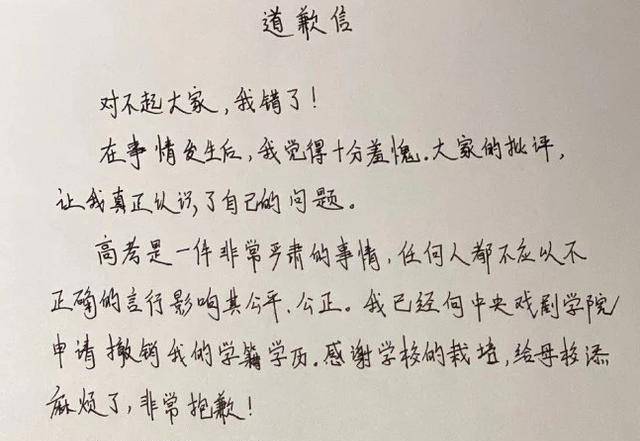 道歉信
对不起大家，我错了！
在事情发生后，我觉得十分羞愧。大家的批评，
让我真正认识了自己的问题。
高考是一件非常严肃的事情，任何人都不应以不
正确的言行影响其公平、公正。我已经向中央戏剧学院
申请撤销我的学籍学历。感谢学校的栽培，给母校添
麻烦了，非常抱歉！